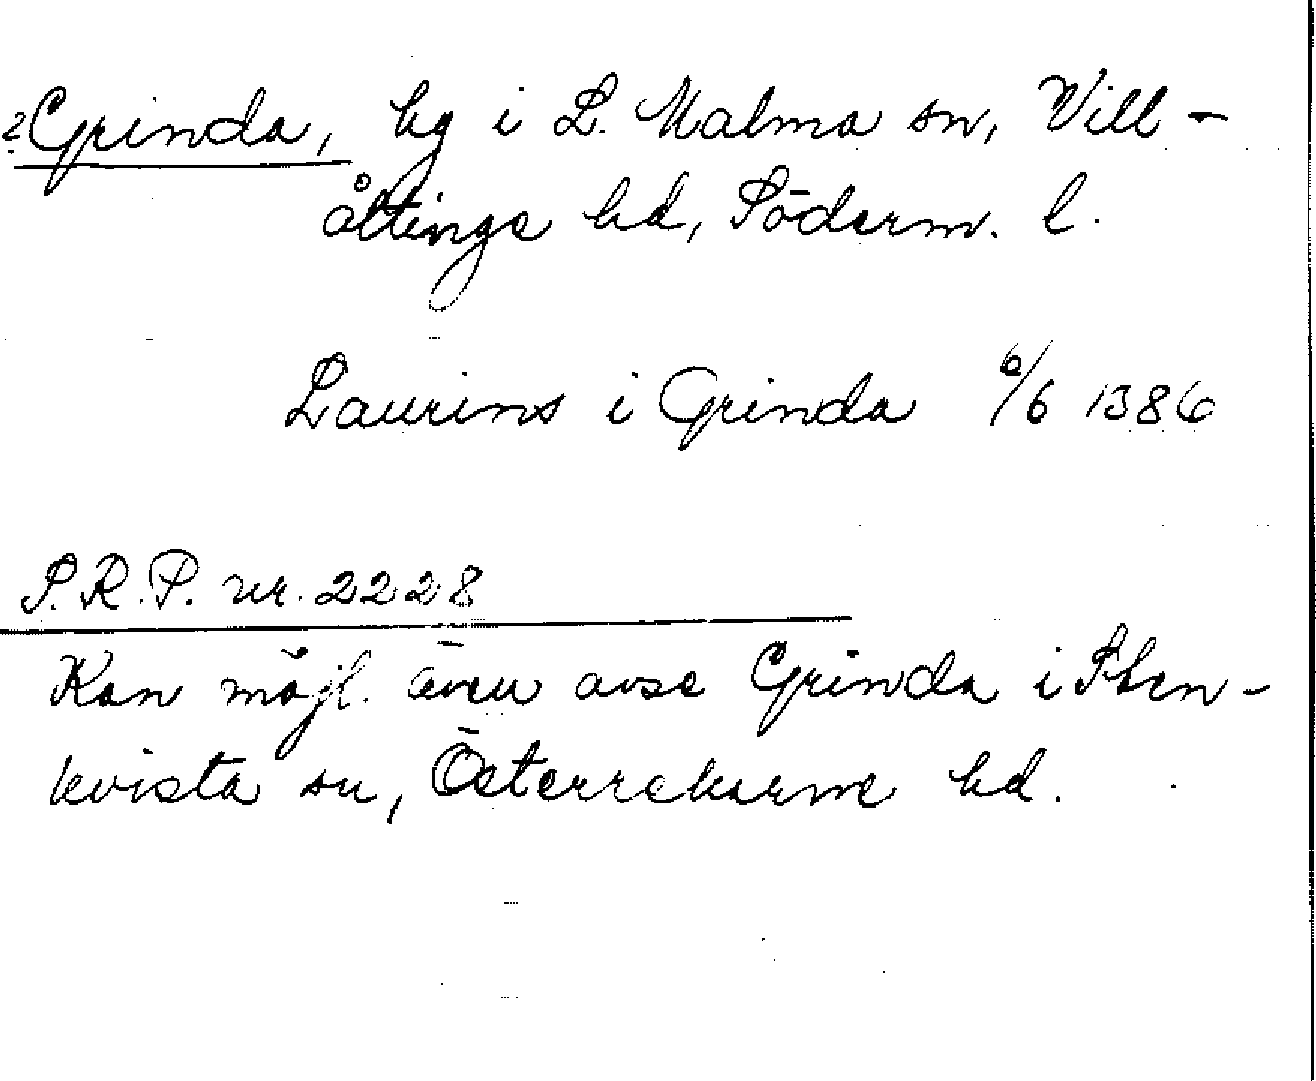 ? Grinda, hg i L. Malma sn, Vill-
åttinge hd, Söderm. l.
Laurins i Grinda 6/6 1386
S.R.P. nr. 2228
Kan möjl. även avse Grinda i Sten-
kvista sn, Österrekarne hd.